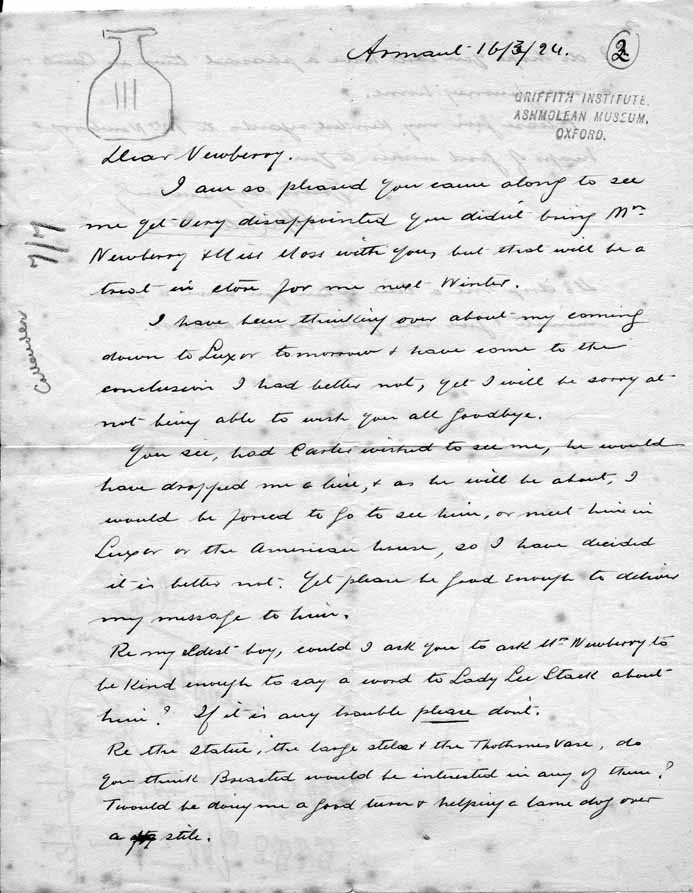 Armant 16/3/24.
2
III
GRIFFITH INSTITUTE.
ASHMOLEAN MUSEUM,
OXFORD.
Dear Newberry.
I am so pleased you came along to see
me yet very disappointed you didn't bring Mrs
Newberry & Miss Moss with you, but that will be a
treat in store for me next Winter.
I have been thinking over about my coming
down to Luxor tomorrow & have come to the
conclusion I had better not, yet I will be sorry at
not being able to wish you all Goodbye.
You see, had Carter wished to see me, he would
have dropped me a line, & as he will be about, I
would be forced to go to see him, or meet him in
Luxor or the American house, so I have decided
it is better not. Yet please be good enough to deliver
my message to him.
Re my eldest boy, could I ask you to ask Mrs Newberry to
be kind enough to say a word to Lady Lee Stack about
him? If it is any trouble please don't.
Re the statue, the large stela & the Thothmes vase, do
you think Breasted would be interested in any of them?
Twould be doing me a good turn & helping a lame dog over
a stile.
7/7
Callender